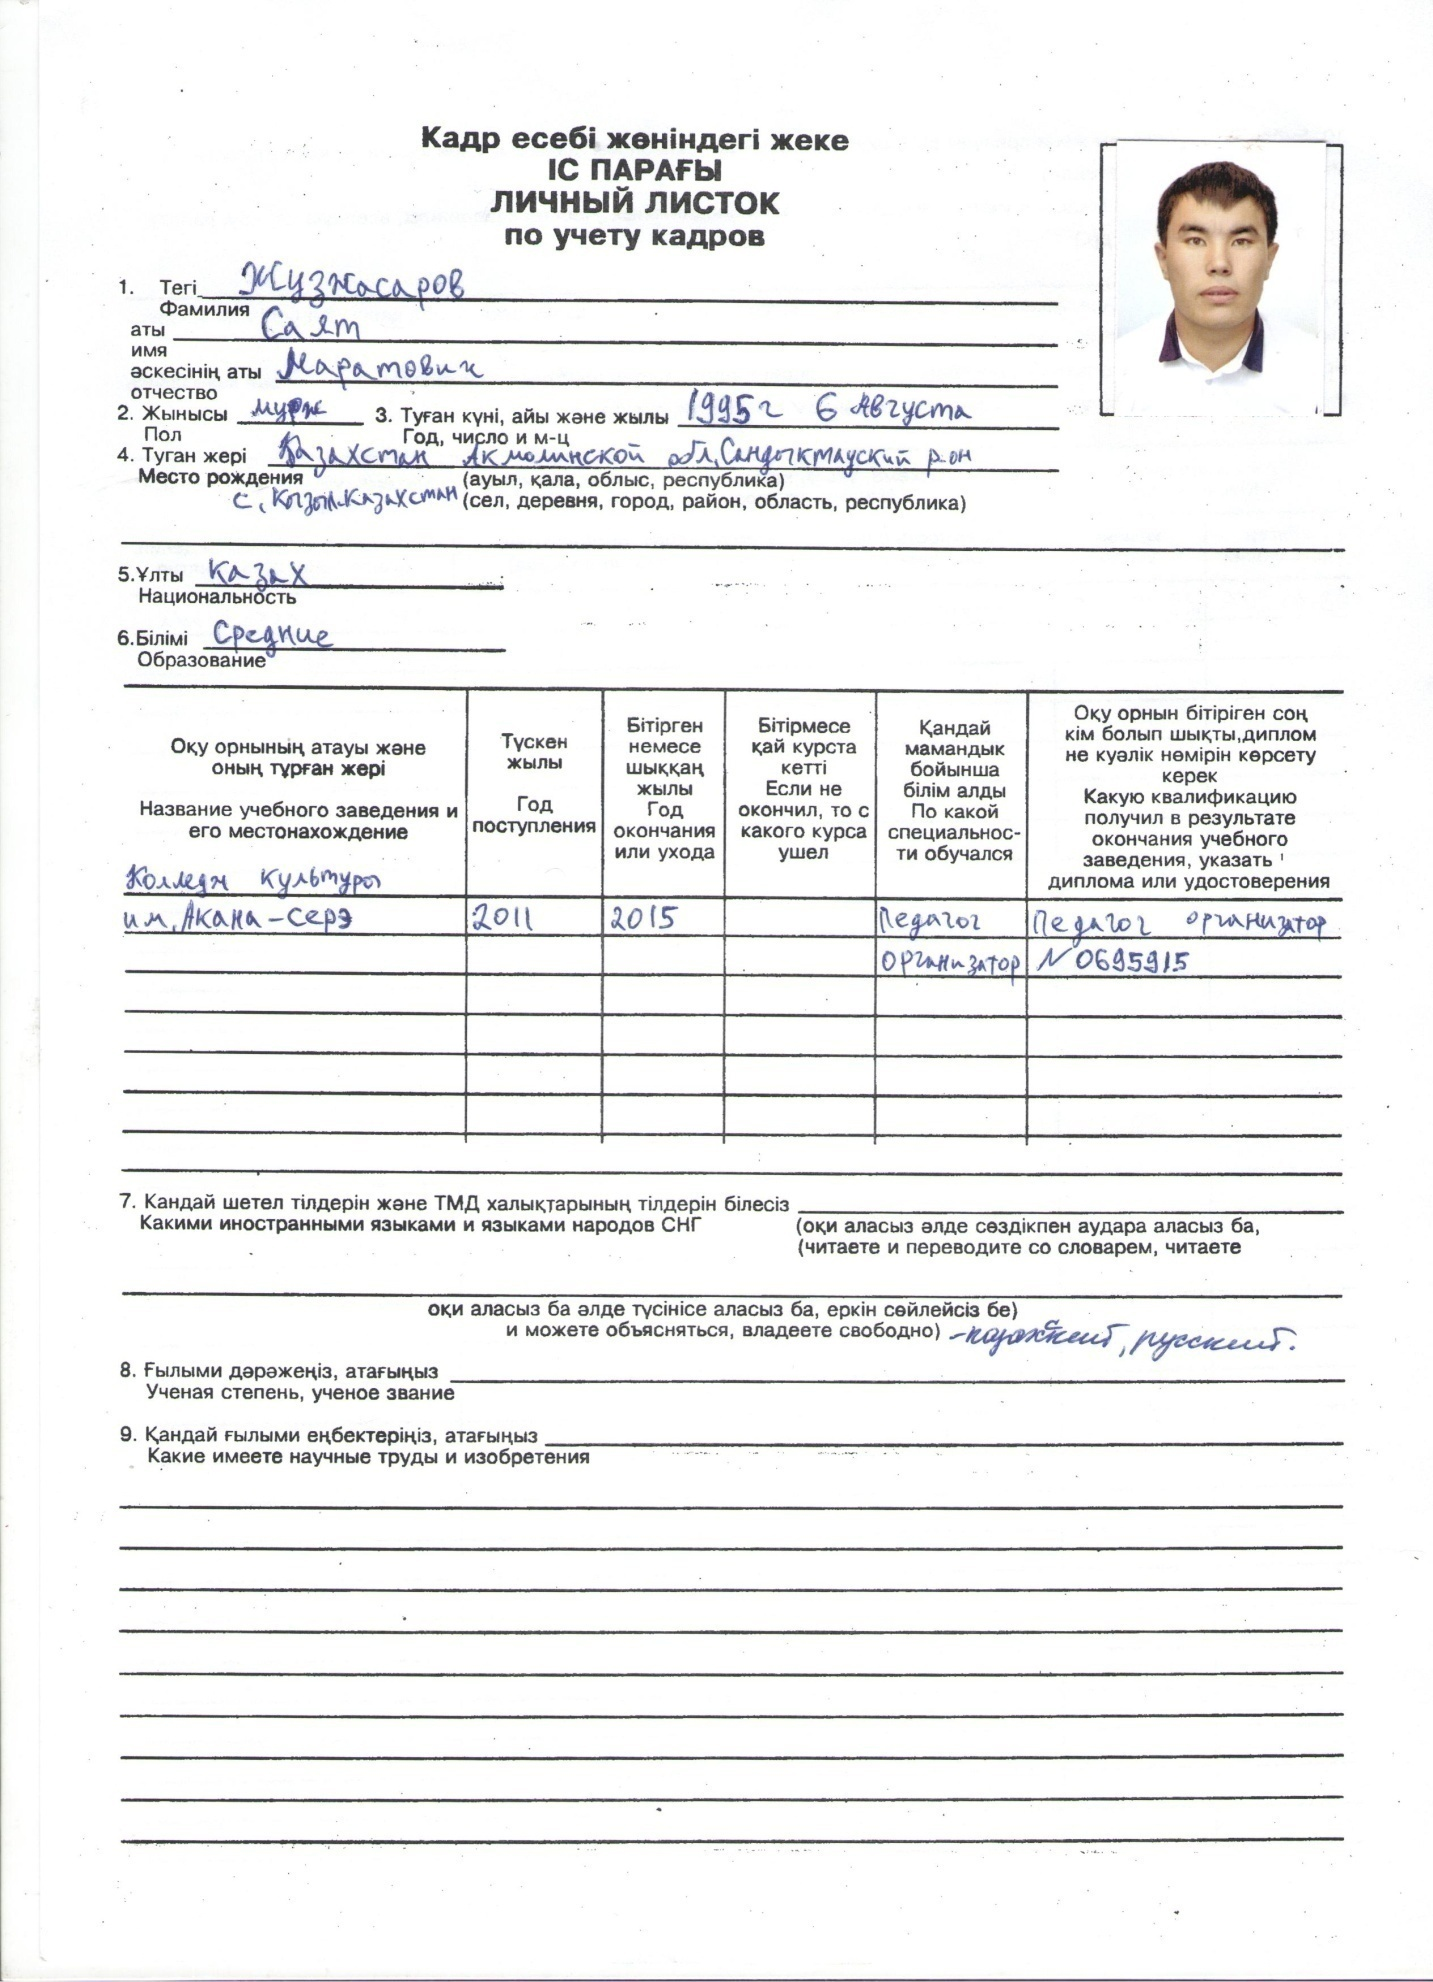 Кадр есебі жөніндегі жеке
ІС ПАРАҒЫ
ЛИЧНЫЙ ЛИСТОК
по учету кадров
1. Тегі Жузжасаров
Фамилия
аты Саят
имя
әскесінің аты Маратович
отчество
2. Жынысы муж 3. Туған күні, айы және жылы 1995г 6 Августа
Пол Год, число и м-ц
4. Туган жері Казахстан Акмолинской обл, Сандыктауский р-он
Место рождения (ауыл, қала, облыс, республика)
с. Кызыл.Казахстан (сел, деревня, город, район, область, республика)
5.Ұлты казах
Национальность
6.Білімі Средние
Образование
Оқу орнының атауы және оның тұрған жері
Название учебного заведения и его местонахождение
Түскен жылы
Год поступления
Бітірген немесе шыққаң жылы
Год окончания или ухода
Бітірмесе қай курста кетті
Если не окончил, то с какого курса ушел
Қандай мамандык бойынша білім алды
По какой специальнос-ти обучался
Оқу орнын бітіріген соң кім болып шықты,диплом не куәлік нөмірін көрсету керек
Какую квалификацию получил в результате окончания учебного заведения, указать диплома или удостоверения
Колледж культуры
им. Акана-серэ 2011 2015 Педагог Педагог организатор
организатор N 0695915
7. Кандай шетел тілдерін және ТМД халықтарының тілдерін білесіз
Какими иностранными языками и языками народов СНГ (оқи аласыз әлде сөздікпен аудара аласыз ба,
(читаете и переводите со словарем, читаете
оқи аласыз ба әлде түсінісе аласыз ба, еркін сөйлейсіз бе)
и можете объясняться, владеете свободно) -казахский, русский.
8. Ғылыми дәрәжеңіз, атағыңыз
Ученая степень, ученое звание
9. Қандай ғылыми еңбектеріңіз, атағыңыз
Какие имеете научные труды и изобретения